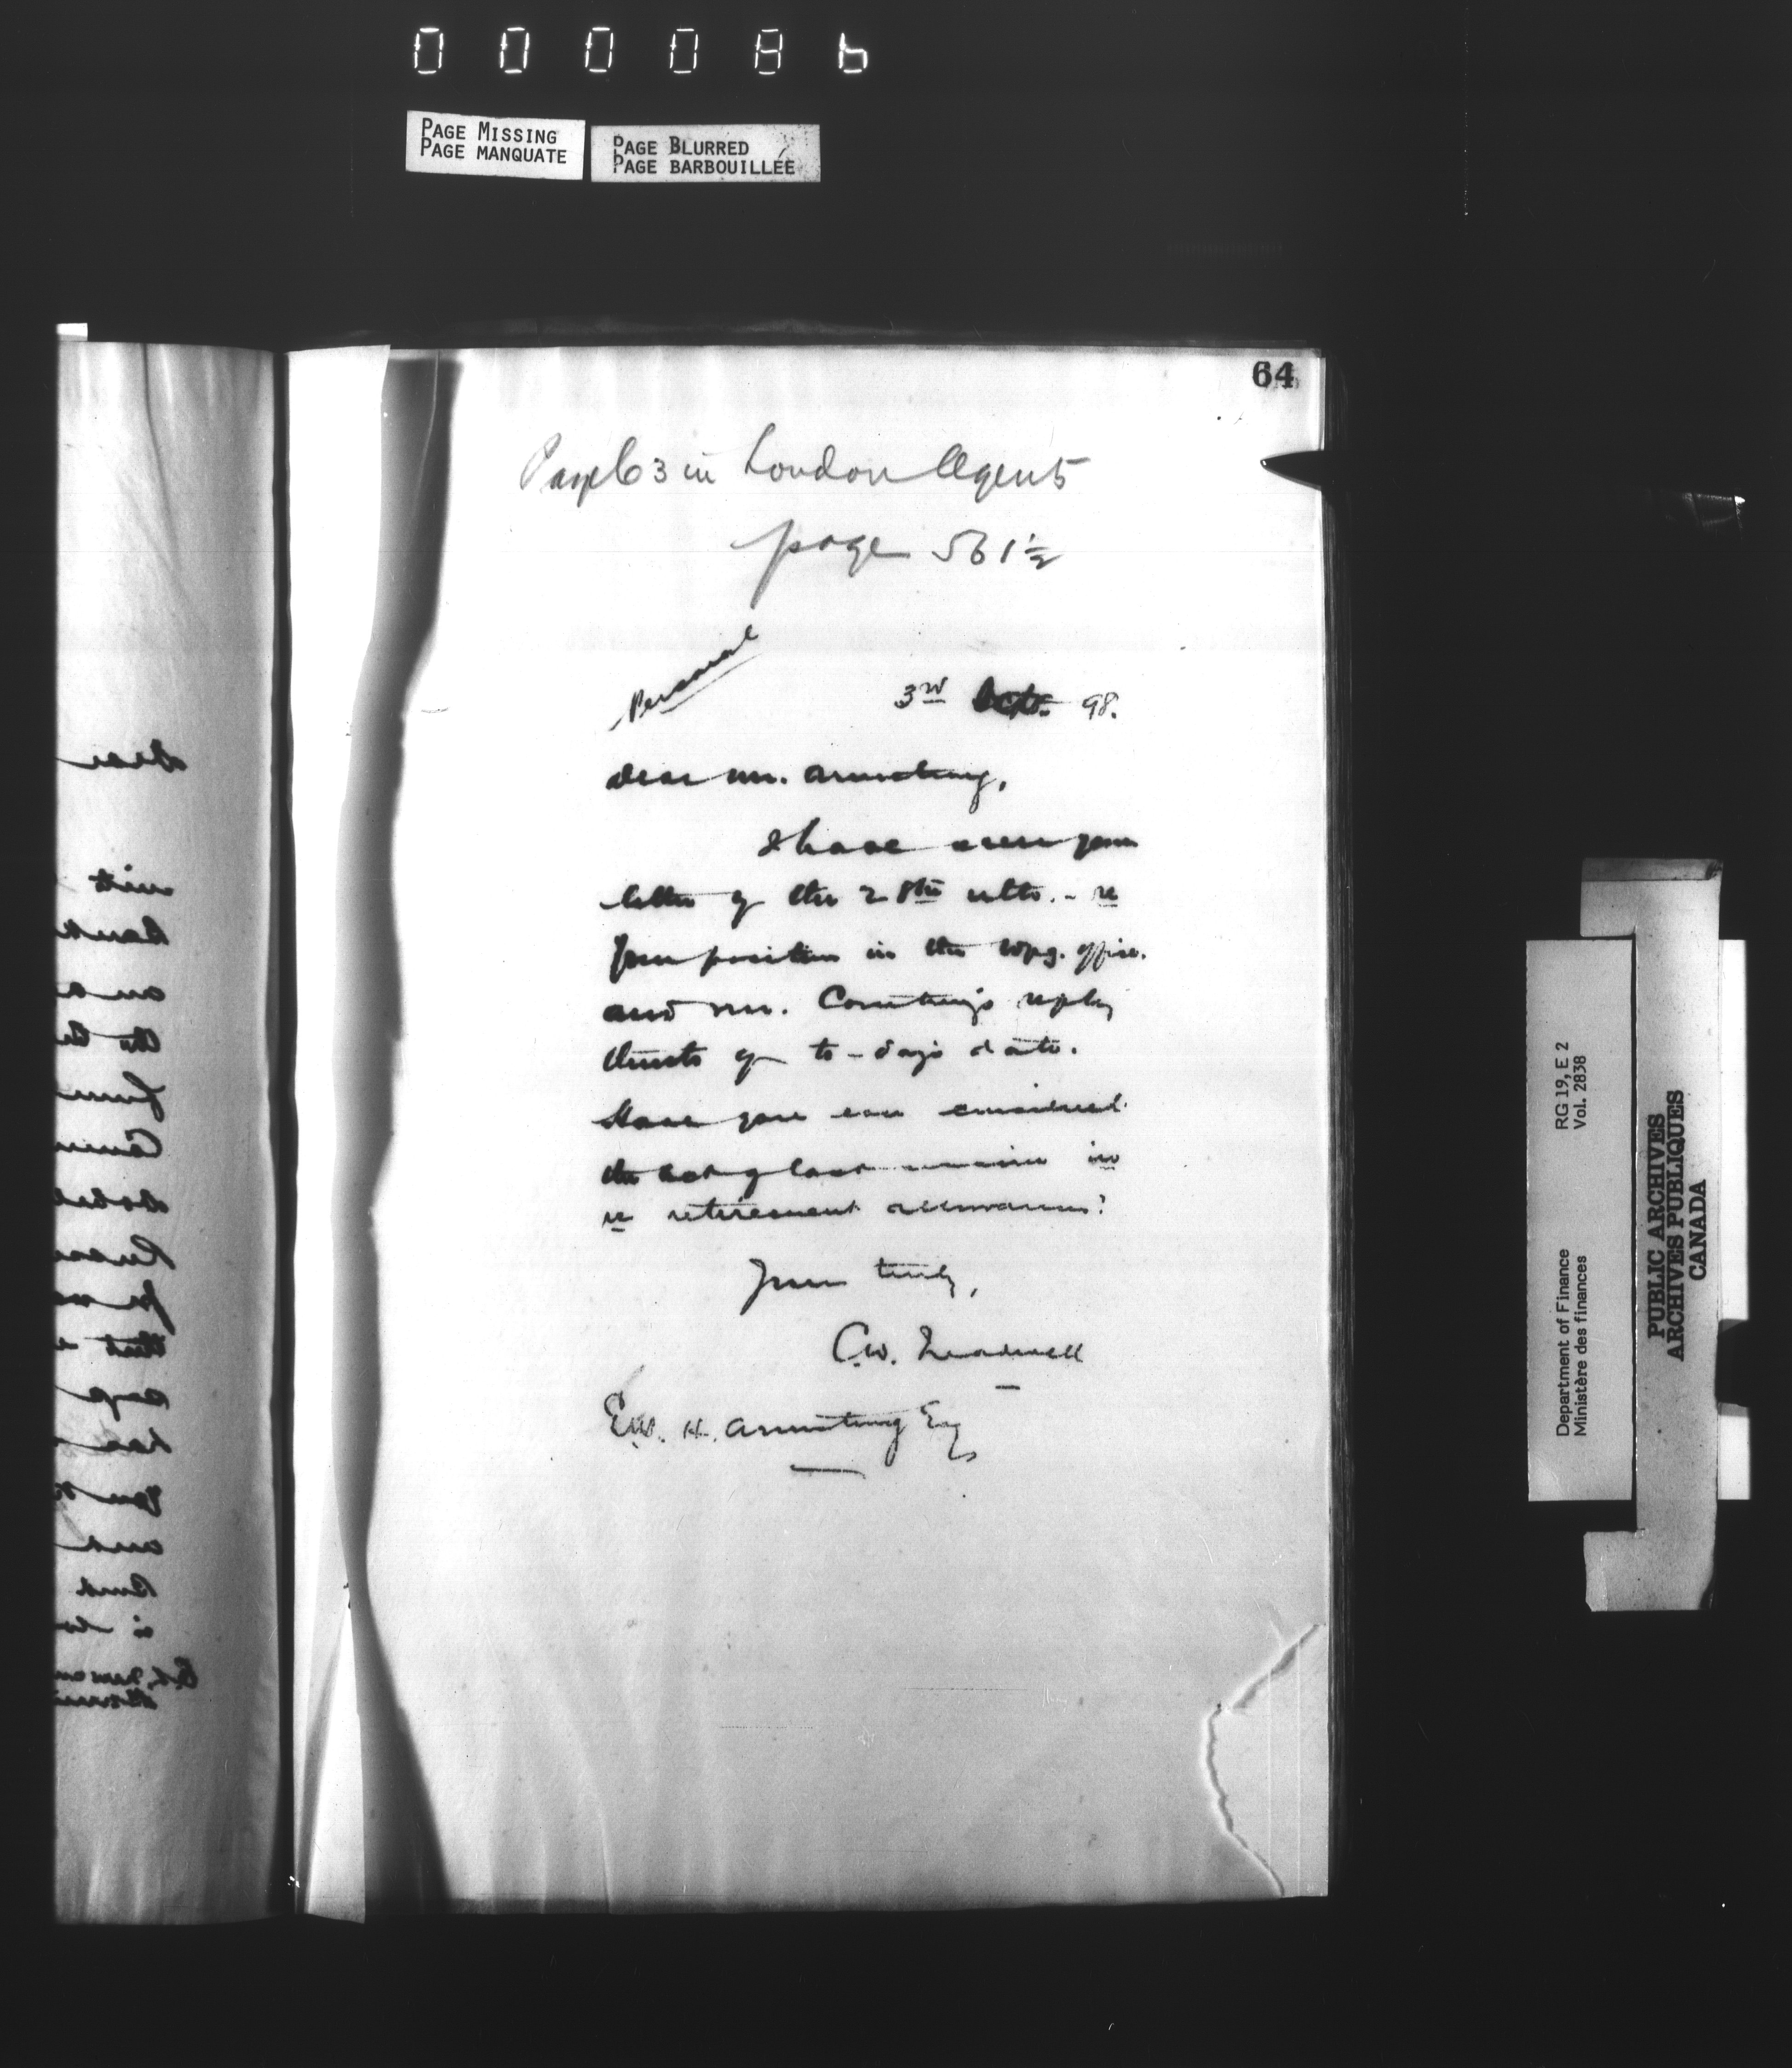 00008b
PAGE MISSING
PAGE MANQUATE
PAGE BLURRED
PAGE BARBOUILLÉE
64
Page 63 in London Agents
page 561½
Personal
3rd Octo. 98.
Dear Mr. Armstrong,
I have seen your
letter of the 28th ulto. - re
your position in the Wpg. office.
and Mr. Courtney's reply
thereto of to-day's date.
Have you ever considered
the Act of last session in
re retirement allowances?
Yours truly,
C.W. Treadwell
E.W. H. Armstrong Esq
RG 19, E 2
Vol. 2838
Department of Finance
Ministère des finances
PUBLIC ARCHIVES
ARCHIVES PUBLIQUES
CANADA